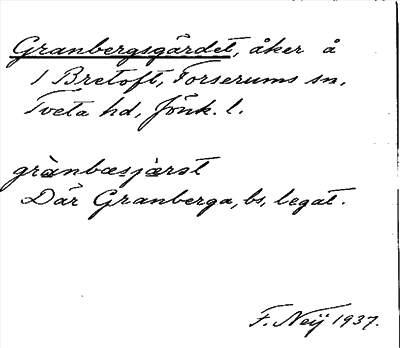 Granbergsgärdet, åker å
1 Bretoft, Forserums sn,
Tveta hd, Jönk. l.
grànbæsjærət
Där Granberga, bs, legat.
F. Neij 1937.